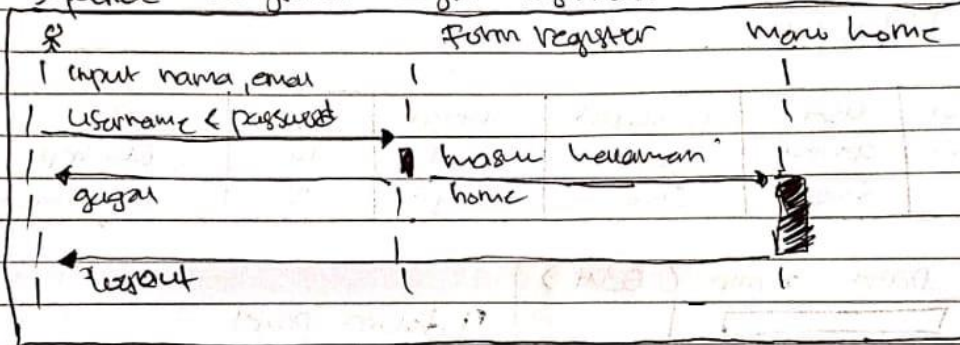 Form register menu home
input nama, email
username & password
masuk halaman
gagal home
logout